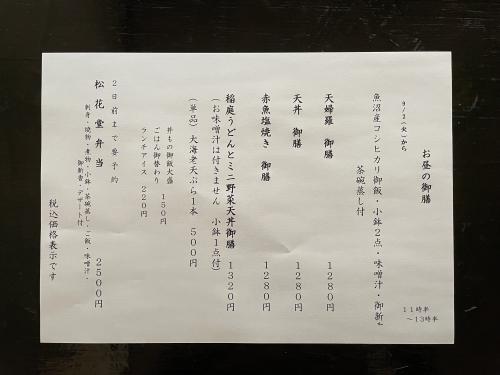 9/2(火)から
お昼の御膳
11時半
~13時半
魚沼産コシヒカリ御飯・小鉢2点・味噌汁・御新香
茶碗蒸し付
天婦羅 御膳 1280円
天丼 御膳 1280円
赤魚塩焼き 御膳 1280円
稲庭うどんとミニ野菜天丼御膳 1320円
(お味噌汁は付きません 小鉢1点付)
(単品)大海老天ぷら1本 500円
丼もの御飯大盛
ごはん御替わり 150円
ランチアイス 220円
2日前まで要予約
松花堂弁当 2500円
刺身・焼物・煮物・小鉢・茶碗蒸し・ご飯・味噌汁・
御新香・デザート付
税込価格表示です